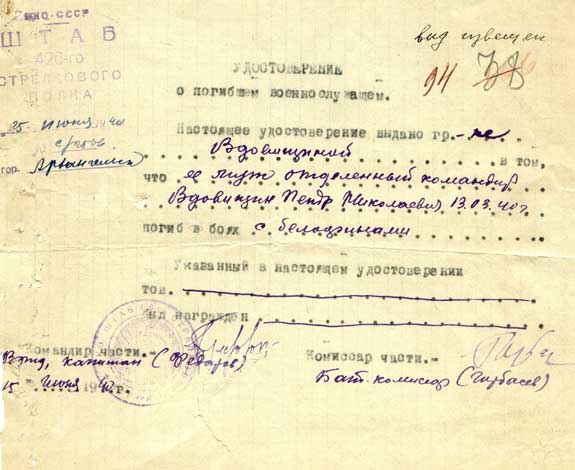 НКО-СССР
ШТАБ
426-го
СТРЕЛКОВОГО
ПОЛКА
25 июня 1940
гор.
вид извещен
94 38
УДОСТОВЕРЕНИЕ
о погибшем военнослужащем.
Настоящее удостоверение выдано гр.-ке
Вдовищиной в том,
что ее муж отделенный командир
Вдовищин Петр Николаевич 13.03.40г
погиб в боях с белофинами
Указанный в настоящем удостоверении
тов.
был награжден
Командир части.-
Врид, капитан (Федоров)
15 " июня 1940
Комиссар части.-
Бат. комиссар